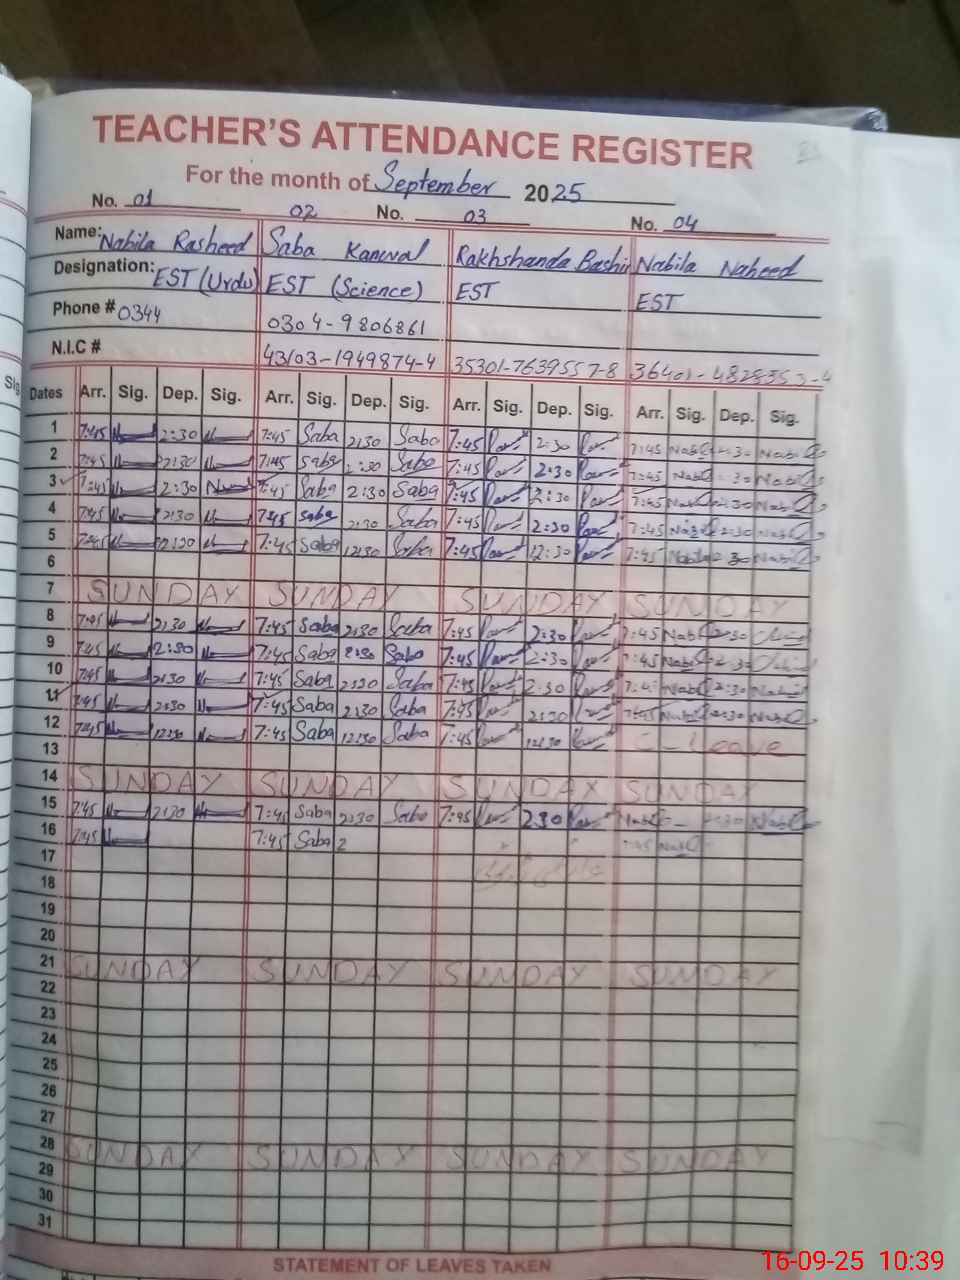 TEACHER'S ATTENDANCE REGISTER
For the month of September 2025
No. 01 02 No. 03 No. 04
Name: Nabila Rasheed Saba Kanwal Rakhshanda Bashir Nabila Naheed
Designation: EST (Urdu) EST (Science) EST EST
Phone # 0344 0304-9806861
N.I.C # 43103-1949874-4 35301-7639557-8
Dates Arr. Sig. Dep. Sig. Arr. Sig. Dep. Sig. Arr. Sig. Dep. Sig. Arr. Sig. Dep. Sig.
1 7:45 2:30 7:45 Saba 2:30 Saba 7:45 2:30 7:45 2:30
2 7:45 2:30 7:45 Saba 2:30 Saba 7:45 2:30 7:45
3 7:45 2:30 7:45 Saba 2:30 Saba 7:45 2:30 7:45 2:30
4 7:45 2:30 7:45 Saba 2:30 Saba 7:45 2:30 7:45 2:30
5 7:45 7:45 Saba 12:30 Saba 7:45 12:30 7:45 Nabila
6
7 SUNDAY SUNDAY SUNDAY SUNDAY
8 7:45 2:30 7:45 Saba 2:30 Saba 7:45 2:30 7:45 2:30
9 7:45 2:30 7:45 Saba 2:30 Saba 7:45 2:30 7:45 2:30
10 7:45 2:30 7:45 Saba 2:30 Saba 7:45 2:30 2:30
11 7:45 2:30 7:45 Saba 2:30 Saba 7:45 2:30 7:45 2:30
12 7:45 12:30 7:45 Saba 12:30 Saba 7:45 12:30 C-Leave
13
14 SUNDAY SUNDAY SUNDAY SUNDAY
15 7:45 2:30 7:45 Saba 2:30 Saba 7:45 2:30 2:30
16 7:45 7:45 Saba 2 7:45
17
18
19
20
21 SUNDAY SUNDAY SUNDAY SUNDAY
22
23
24
25
26
27
28 SUNDAY SUNDAY SUNDAY SUNDAY
29
30
31
STATEMENT OF LEAVES TAKEN
16-09-25 10:39